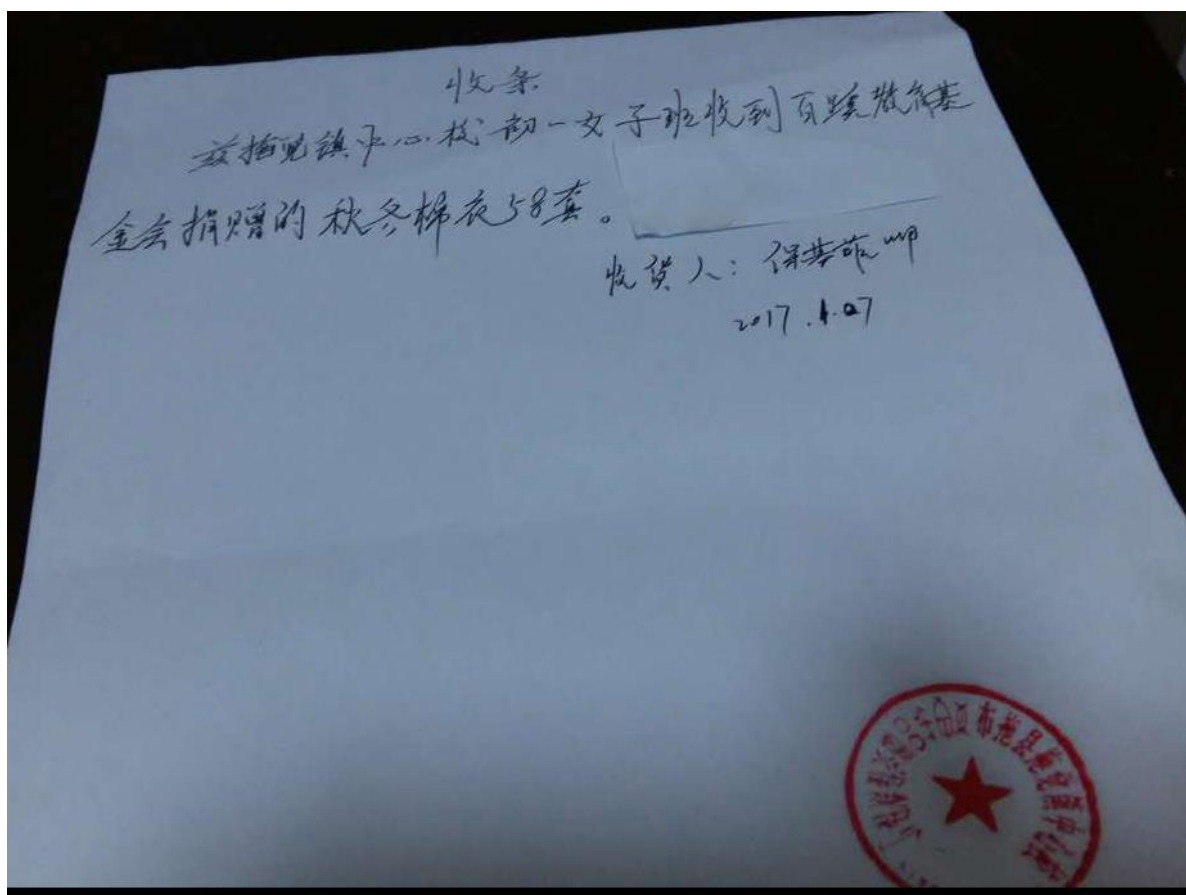 收条
兹拖觉镇中心校初一女子班收到百蹊教育基
金会捐赠的秋冬棉衣58套。
收货人：保其
2017.
布拖县拖觉镇中心校